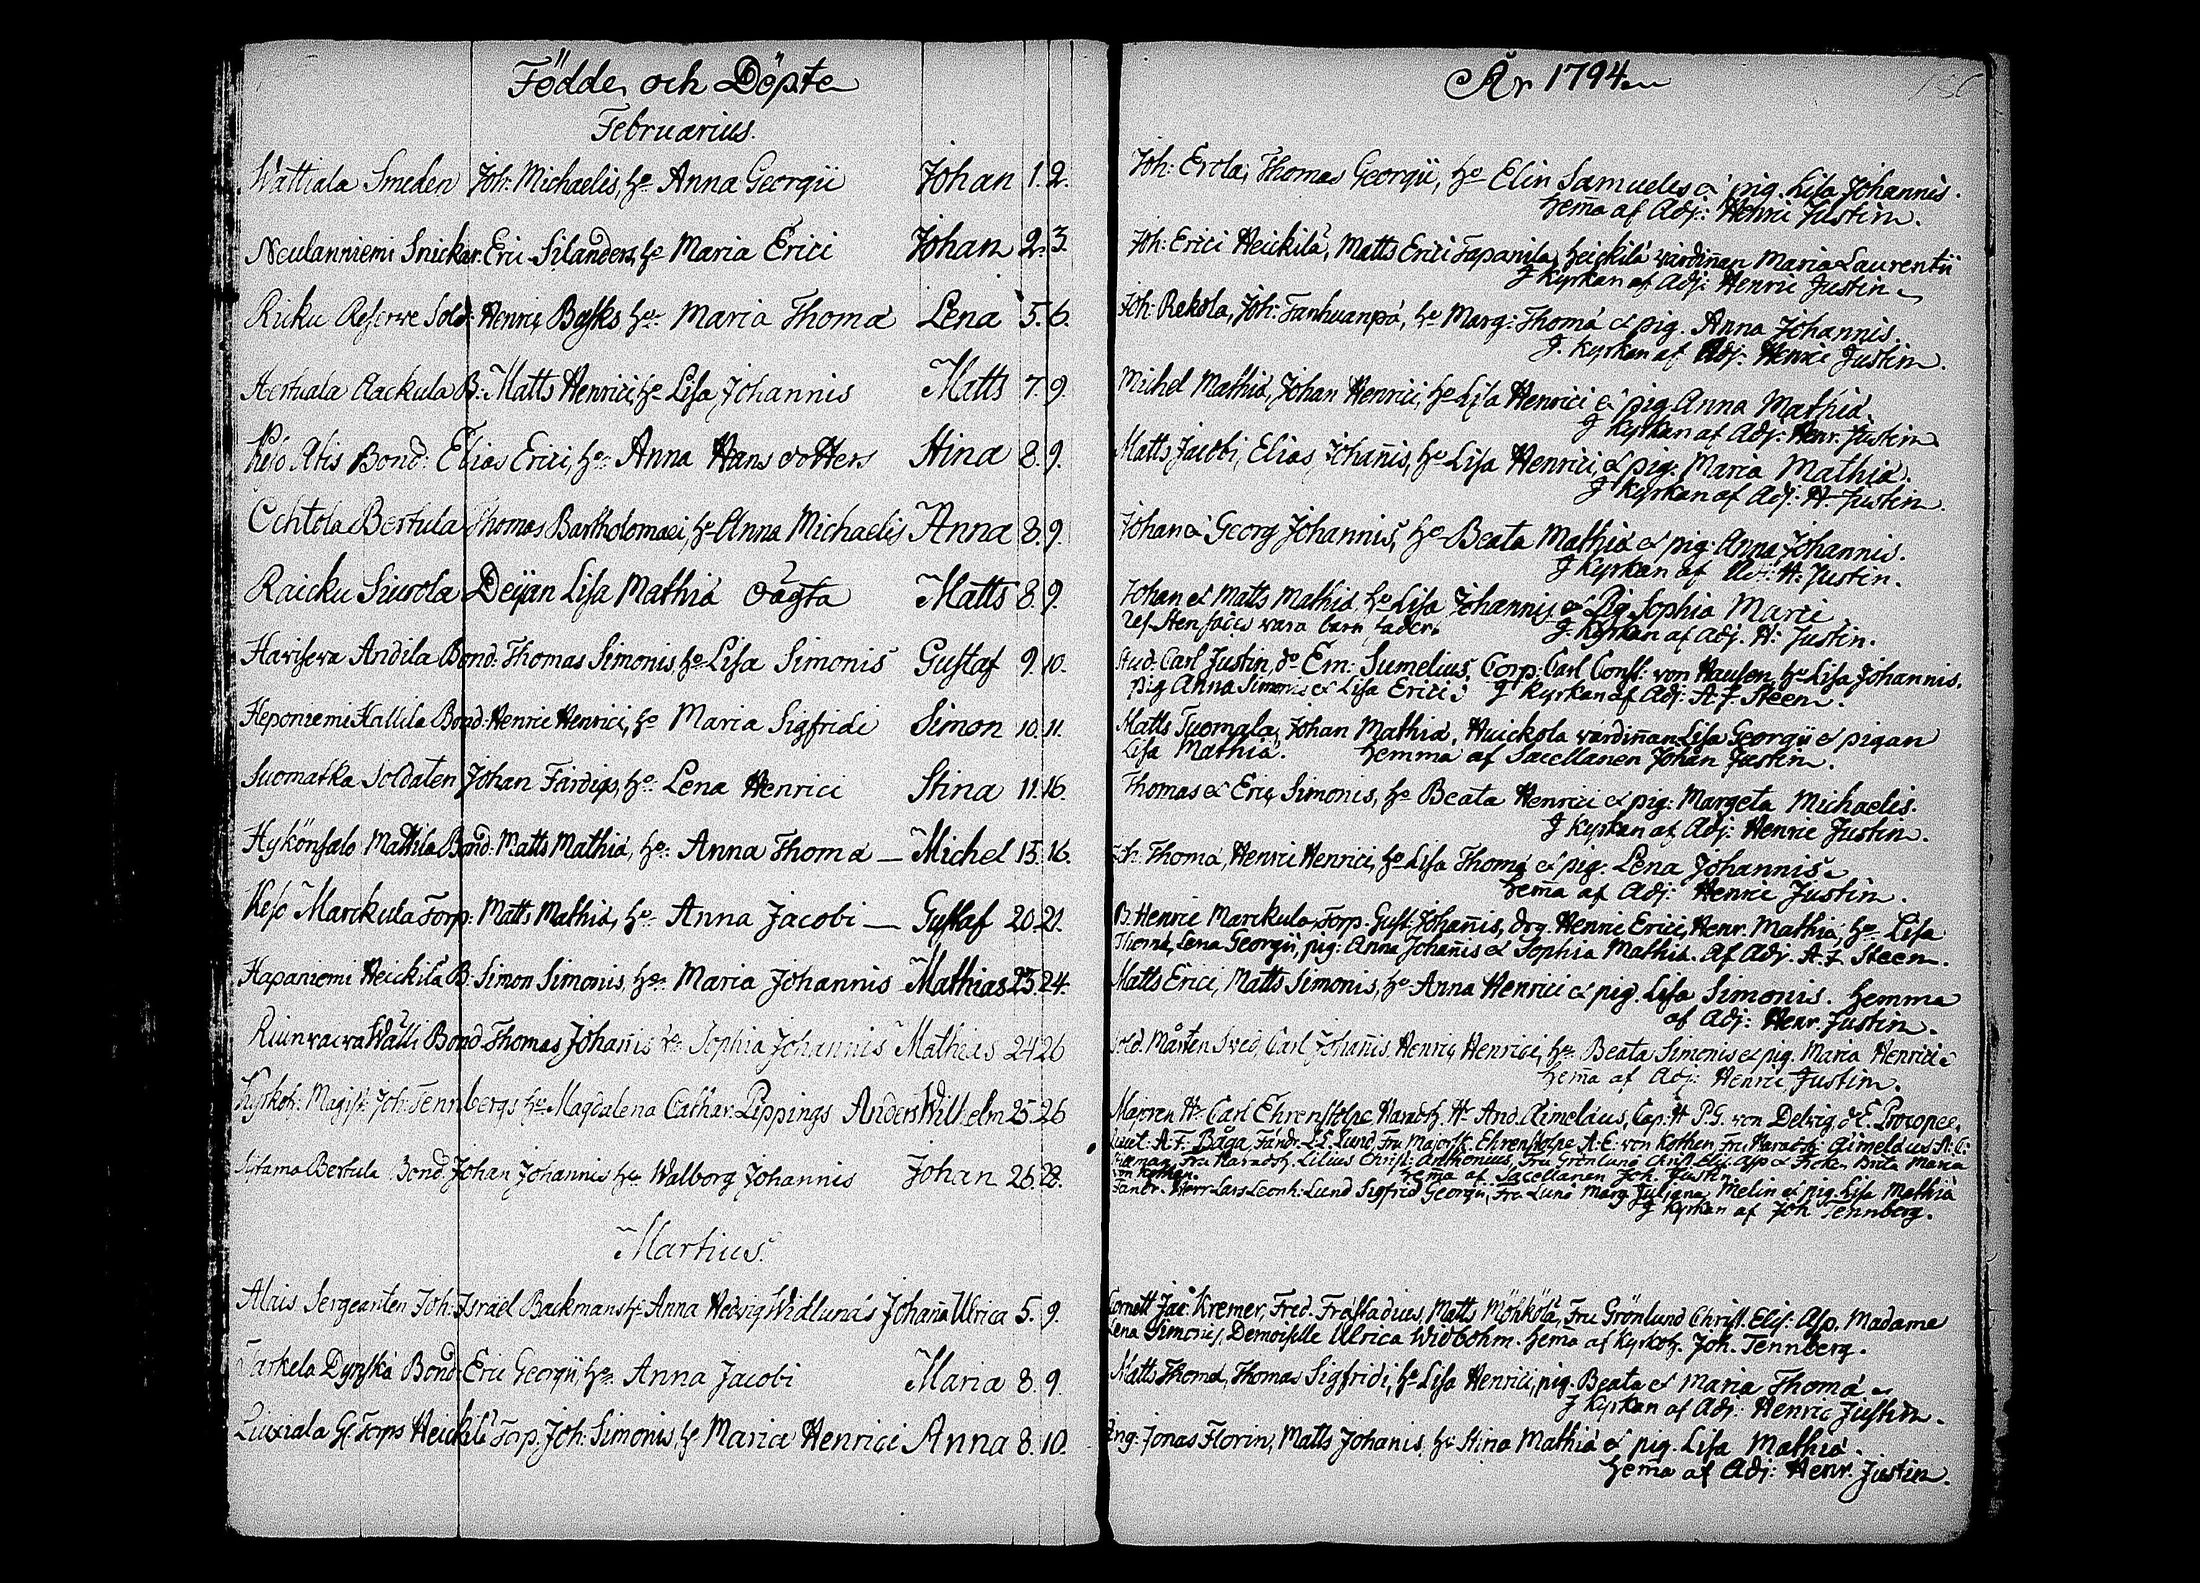 Födde och Döpte
Februarius.
Wattiala Smeden Joh: Michaelis, h:o Anna Georgii Johan 1. 2.
Neulanniemi Snickar. Eric Silanders, h:o Maria Erici Johan 2. 3.
Ricku Reserwe Sold: Henric Basks h:o Maria Thomæ Lena 5. 6.
Aackula B. Matts Henrici, h:o Lisa Johannis Matts 7. 9.
Keso Alis Bond: Elias Erici, h:o Anna Hans dotters Stina 8. 9.
Ochtola Bertula Thomas Bartholomaei, h:o Anna Michaelis Anna 8. 9.
Raicku Siurola Deijan Lisa Mathiæ oägta Matts 8. 9.
Haviseva Andila Bond: Thomas Simonis, h:o Lisa Simonis Gustaf 9. 10.
Heponiemi Kallila Bond: Henric Henrici, h:o Maria Sigfridi Simon 10. 11.
Suomatka Soldaten Johan Färdigs, h:o Lena Henrici Stina 11. 16.
Hykönsalo Mattila Bond: Matts Mathiæ, h:o Anna Thomæ — Michel 15. 16.
Keso Marckula Torp: Matts Mathiæ, h:o Anna Jacobi — Gustaf 20. 21.
Hapaniemi Heickilä B. Simon Simonis, h:o Maria Johannis Mathias 23. 24.
Riunvaiva Wälli Bond. Thomas Johañis h:o Sophia Johannis Mathias 24 26
Kyrkoh: Magist: Joh: Tennbergs h:o Magdalena Cathar. Lippings Anders Wilhelm 25. 26
Bertula Bond. Johan Johannis h:o Walborg Johannis Johan 26. 28.
Martius.
Alais Sergeanten Joh: Israel Backmans h:o Anna Hedvig Widlunds Johaña Ulrica 5. 9.
Dynskä Bond: Eric Georgii, h:o Anna Jacobi Maria 8. 9.
Liuxiala Torps Heickilä Torp. Joh: Simonis, h:o Maria Henrici Anna 8. 10.
År 1794
Joh: Erola, Thomas Georgii, h:o Elin Samuelis & pig. Lisa Johannis.
hem̃a af Adj: Henric Justin.
Joh: Erici Heickilä, Matts Erici Tapanila, Heickilä värdinan Maria Laurentii
J Kyrkan af Adj: Henric Justin
Joh: Rekola, Joh: Tanhuanpä, h:o Marg: Thomæ & pig. Anna Johannis.
J. Kyrkan af Adj. Henric Justin.
Michel Mathiæ, Johan Henrici, h:o Lisa Henrici & pig. Anna Mathiæ.
J Kyrkan af Adj: Henr. Justin
Matts Jacobi, Elias Johañis, h:o Lisa Henrici, & pig. Maria Mathiæ.
J Kyrkan af Adj: H. Justin.
Johan & Georg Johannis, h:o Beata Mathiæ & pig. Anna Johannis.
J Kyrkan af Adj: H. Justin.
Johan & Matts Mathiæ h:o Lisa Johannis & Pig. Sophia Marci
vara barn fader. J. Kyrkan af Adj. H: Justin.
Stud: Carl Justin, d:o Em: Sumelius, Corp: Carl Const: von Hausen, h:o Lisa Johannis.
pig Anna Simonis & Lisa Erici: J Kyrkan af Adj: A. F. Steen.
Matts Tuomala, Johan Mathiæ, Huickola värdiñan Lisa Georgii & pigan
Lisa Mathiæ. hemma af Sacellanen Johan Justin.
Thomas & Eric Simonis, h:o Beata Henrici & pig: Margeta Michaelis.
J Kyrkan af Adj: Henric Justin.
Joh. Thomæ, Henric Henrici, h:o Lisa Thomæ & pig: Lena Johannis.
hem̃a af Adj: Henric Justin.
B. Henric Marckula, Torp. Gust: Johañis, drg. Henric Erici, Henr. Mathiæ, h:o Lisa
Thomæ, Lena Georgii, pig: Anna Johañis & Sophia Mathiæ. af Adj. A. F. Steen.
Matts Erici, Matts Simonis, h:o Anna Henrici & pig. Lisa Simonis. hemma
af Adj: Henr. Justin.
Sold. Mårten Sved, Carl Johañis, Henric Henrici, h:o Beata Simonis & pig. Maria Henrici
hem̃a af Adj: Henric Justin.
Majoren H:r Carl Ehrenstolpe, Häradsh: H:r And. Aimelæus, Cap. H: P. G. von Delvig, & E. Procopee,
Lieut. A. F. Båga, Fändr. L. L. Lund, Fru Majorsk. Ehrenstolpe A. E. von Kothen, Fru Häradsh: Aimelæus A. C.
Fru Häradsh. Lilius Christ: Anthonius, Fru Grönlund Christ. Elis: Asp & Fröken Brita Maria
von Kothen. hem̃a af Sacellanen Joh. Justin.
Fändr. Herr Lars Leonh: Lund Sigfrid Georgii, Fru Lund Marg. Juliana Melin & pig. Lisa Mathiæ
J Kyrkan af Joh Tennberg.
Cornett Jac: Kremer, Fred. Fräsadius, Matts Möhkölä, Fru Grönlund Christ. Elis: Asp, Madame
Lena Simonis, Demoiselle Ulrica Widbohm. hem̃a af Kyrkoh. Joh. Tennberg.
Matts Thomæ, Thomas Sigfridi, h:o Lisa Henrici, pig. Beata & Maria Thomæ
J Kyrkan af Adj: Henric Justin.
Jonas Florin, Matts Johanis, h:o Stina Mathiæ & pig. Lisa Mathiæ.
hem̃a af Adj: Henr. Justin.